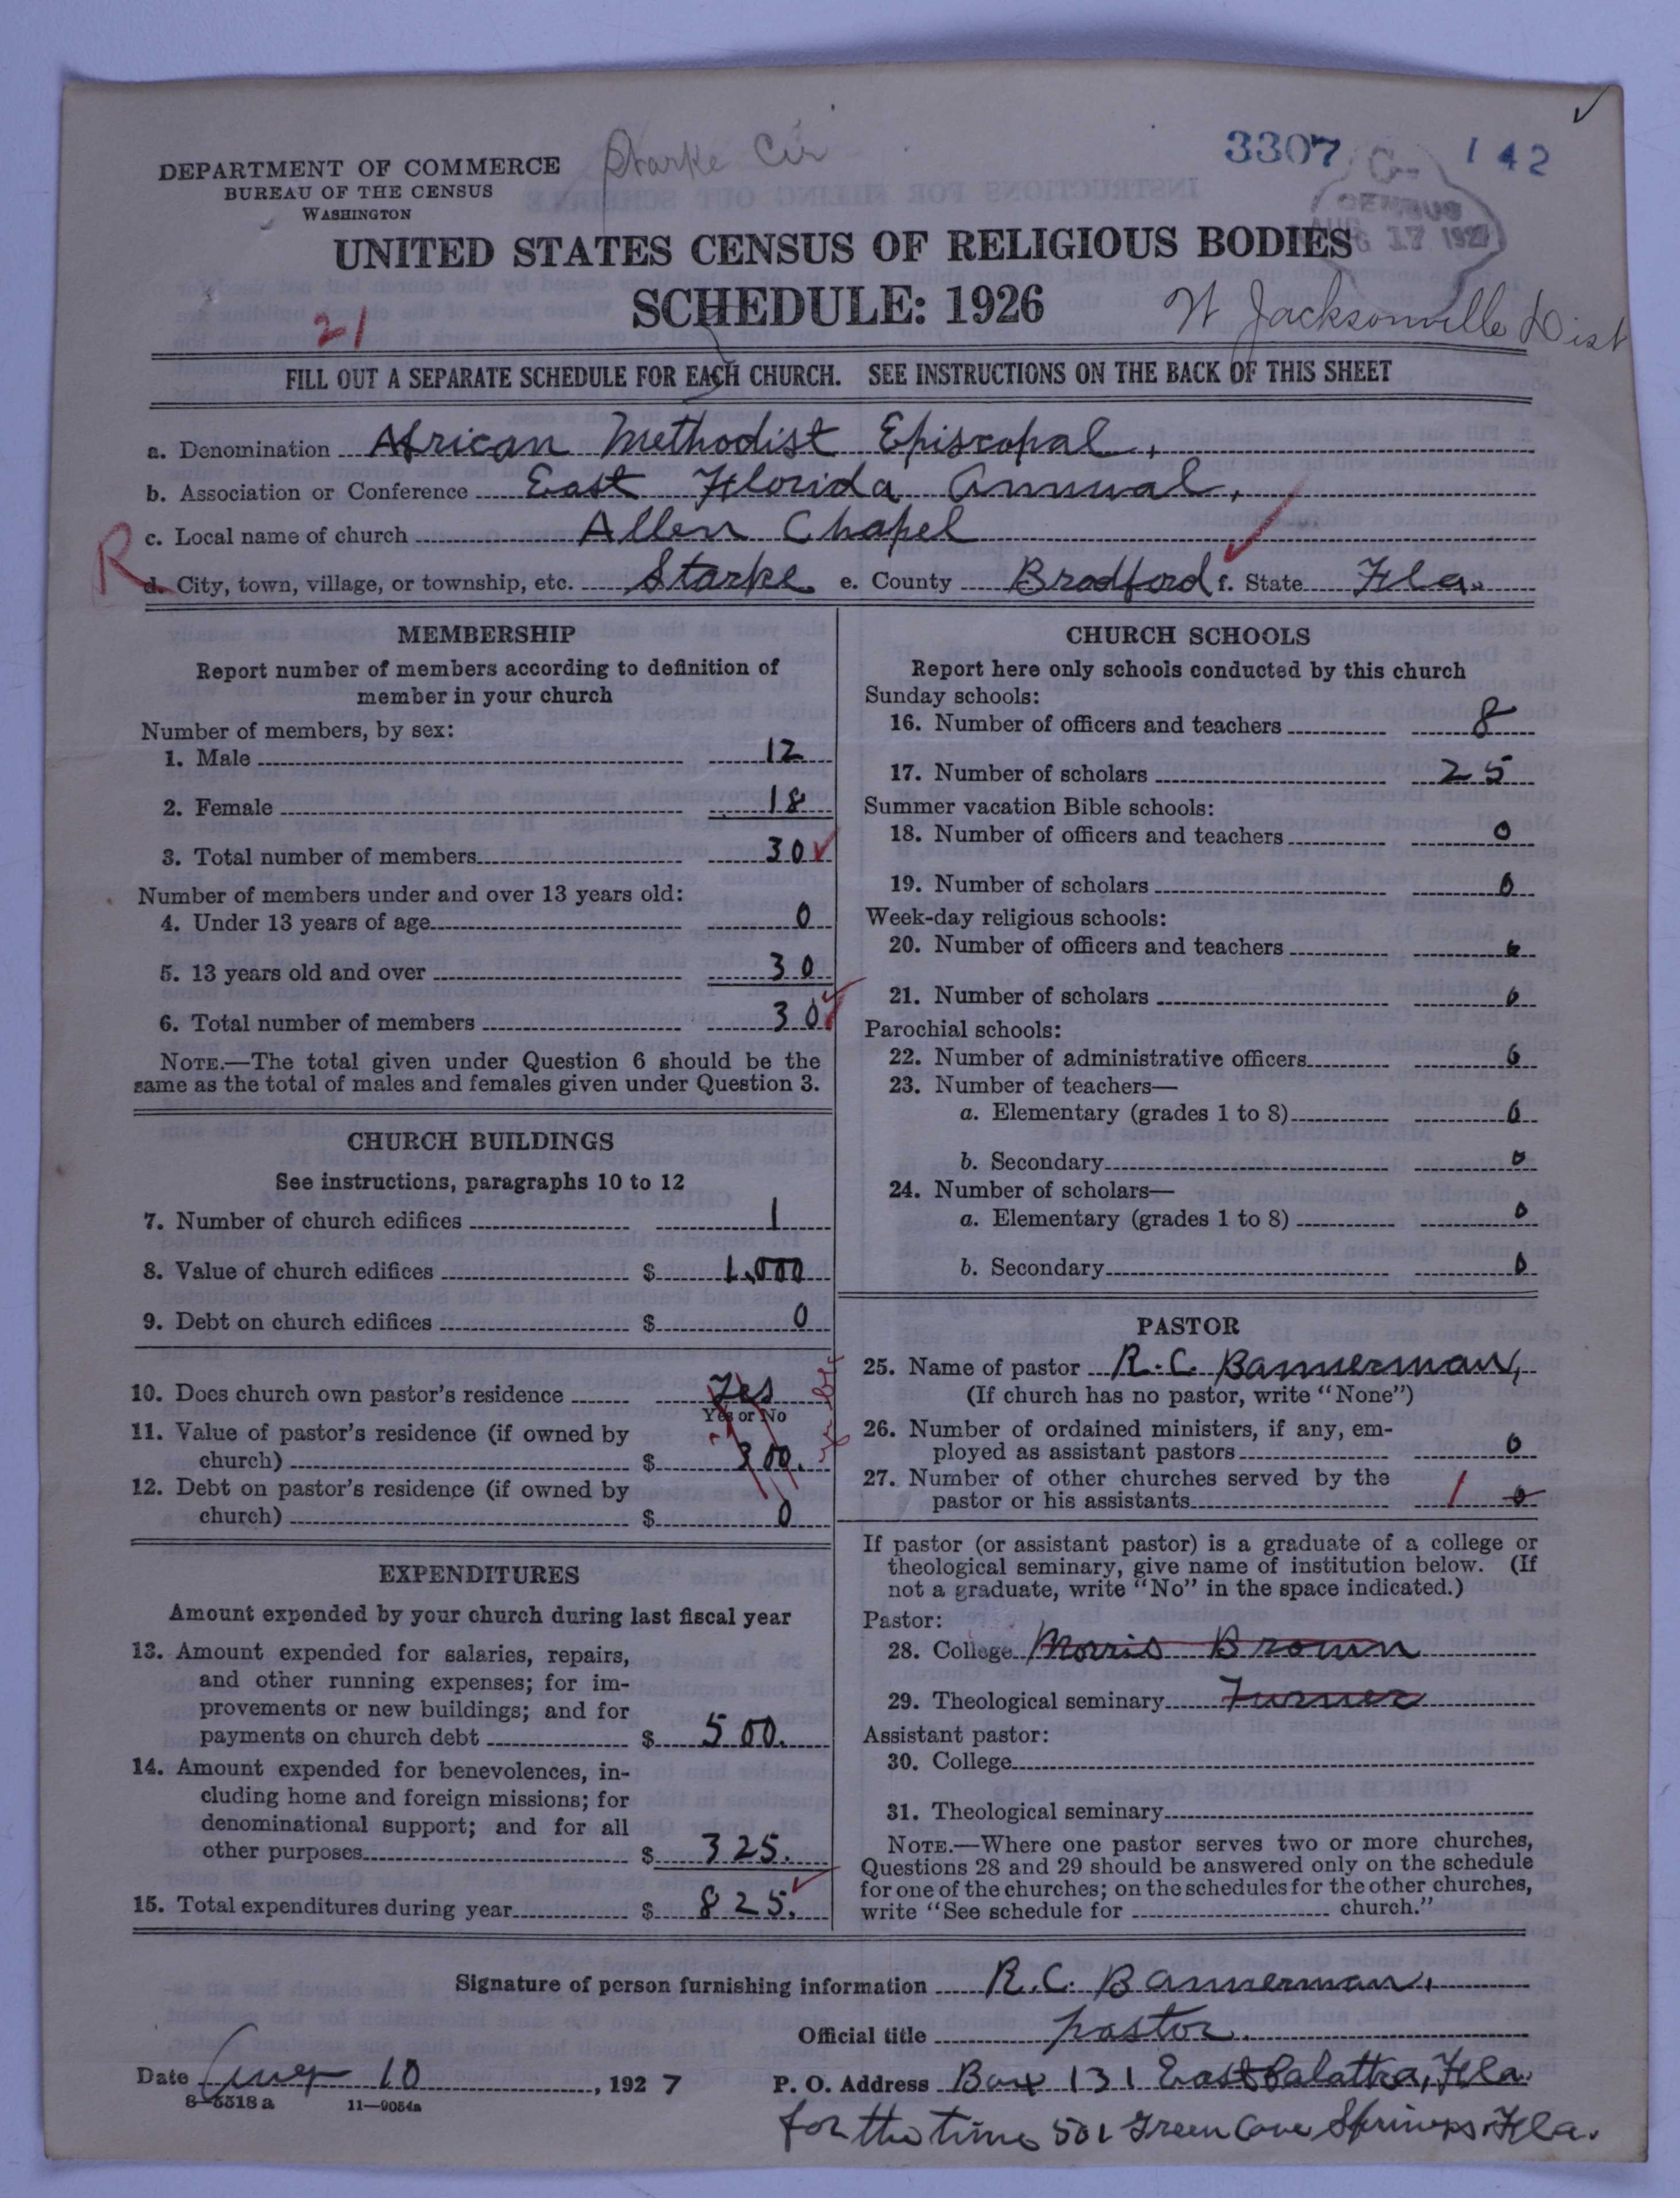 Starke Cir
3307
142
DEPARTMENT OF COMMERCE
BUREAU OF THE CENSUS
WASHINGTON
CENSUS
AUG 17 1927
UNITED STATES CENSUS OF RELIGIOUS BODIES
SCHEDULE: 1926
W Jacksonville Dist
21
FILL OUT A SEPARATE SCHEDULE FOR EACH CHURCH. SEE INSTRUCTIONS ON THE BACK OF THIS SHEET
a. Denomination African Methodist Episcopal,
b. Association or Conference East Florida Annual,
c. Local name of church Allen Chapel
R
d. City, town, village, or township, etc. Starke e. County Bradford f. State Fla.
MEMBERSHIP
Report number of members according to definition of
member in your church
Number of members, by sex:
1. Male 12
2. Female 18
3. Total number of members 30
Number of members under and over 13 years old:
4. Under 13 years of age 0
5. 13 years old and over 30
6. Total number of members 30
NOTE.—The total given under Question 6 should be the
same as the total of males and females given under Question 3.
CHURCH BUILDINGS
See instructions, paragraphs 10 to 12
7. Number of church edifices 1
8. Value of church edifices $ 1,000
9. Debt on church edifices $ 0
10. Does church own pastor's residence Yes
Yes or No
11. Value of pastor's residence (if owned by
church) $ 300.
12. Debt on pastor's residence (if owned by
church) $ 0
EXPENDITURES
Amount expended by your church during last fiscal year
13. Amount expended for salaries, repairs,
and other running expenses; for im-
provements or new buildings; and for
payments on church debt $ 500.
14. Amount expended for benevolences, in-
cluding home and foreign missions; for
denominational support; and for all
other purposes $ 325.
15. Total expenditures during year $ 825.
CHURCH SCHOOLS
Report here only schools conducted by this church
Sunday schools:
16. Number of officers and teachers 8
17. Number of scholars 25
Summer vacation Bible schools:
18. Number of officers and teachers 0
19. Number of scholars 0
Week-day religious schools:
20. Number of officers and teachers 0
21. Number of scholars 0
Parochial schools:
22. Number of administrative officers 0
23. Number of teachers—
a. Elementary (grades 1 to 8) 0
b. Secondary 0
24. Number of scholars—
a. Elementary (grades 1 to 8) 0
b. Secondary 0
PASTOR
25. Name of pastor R. C. Bannerman,
(If church has no pastor, write "None")
26. Number of ordained ministers, if any, em-
ployed as assistant pastors 0
27. Number of other churches served by the
pastor or his assistants 1 0
If pastor (or assistant pastor) is a graduate of a college or
theological seminary, give name of institution below. (If
not a graduate, write "No" in the space indicated.)
Pastor:
28. College Morris Brown
29. Theological seminary Turner
Assistant pastor:
30. College
31. Theological seminary
NOTE.—Where one pastor serves two or more churches,
Questions 28 and 29 should be answered only on the schedule
for one of the churches; on the schedules for the other churches,
write "See schedule for church."
Signature of person furnishing information R. C. Bannerman,
Official title pastor.
Date Aug 10, 1927 P. O. Address Box 131 East Palatka, Fla.
8—5518a 11—9054a
for the time 501 Green Cove Springs Fla.